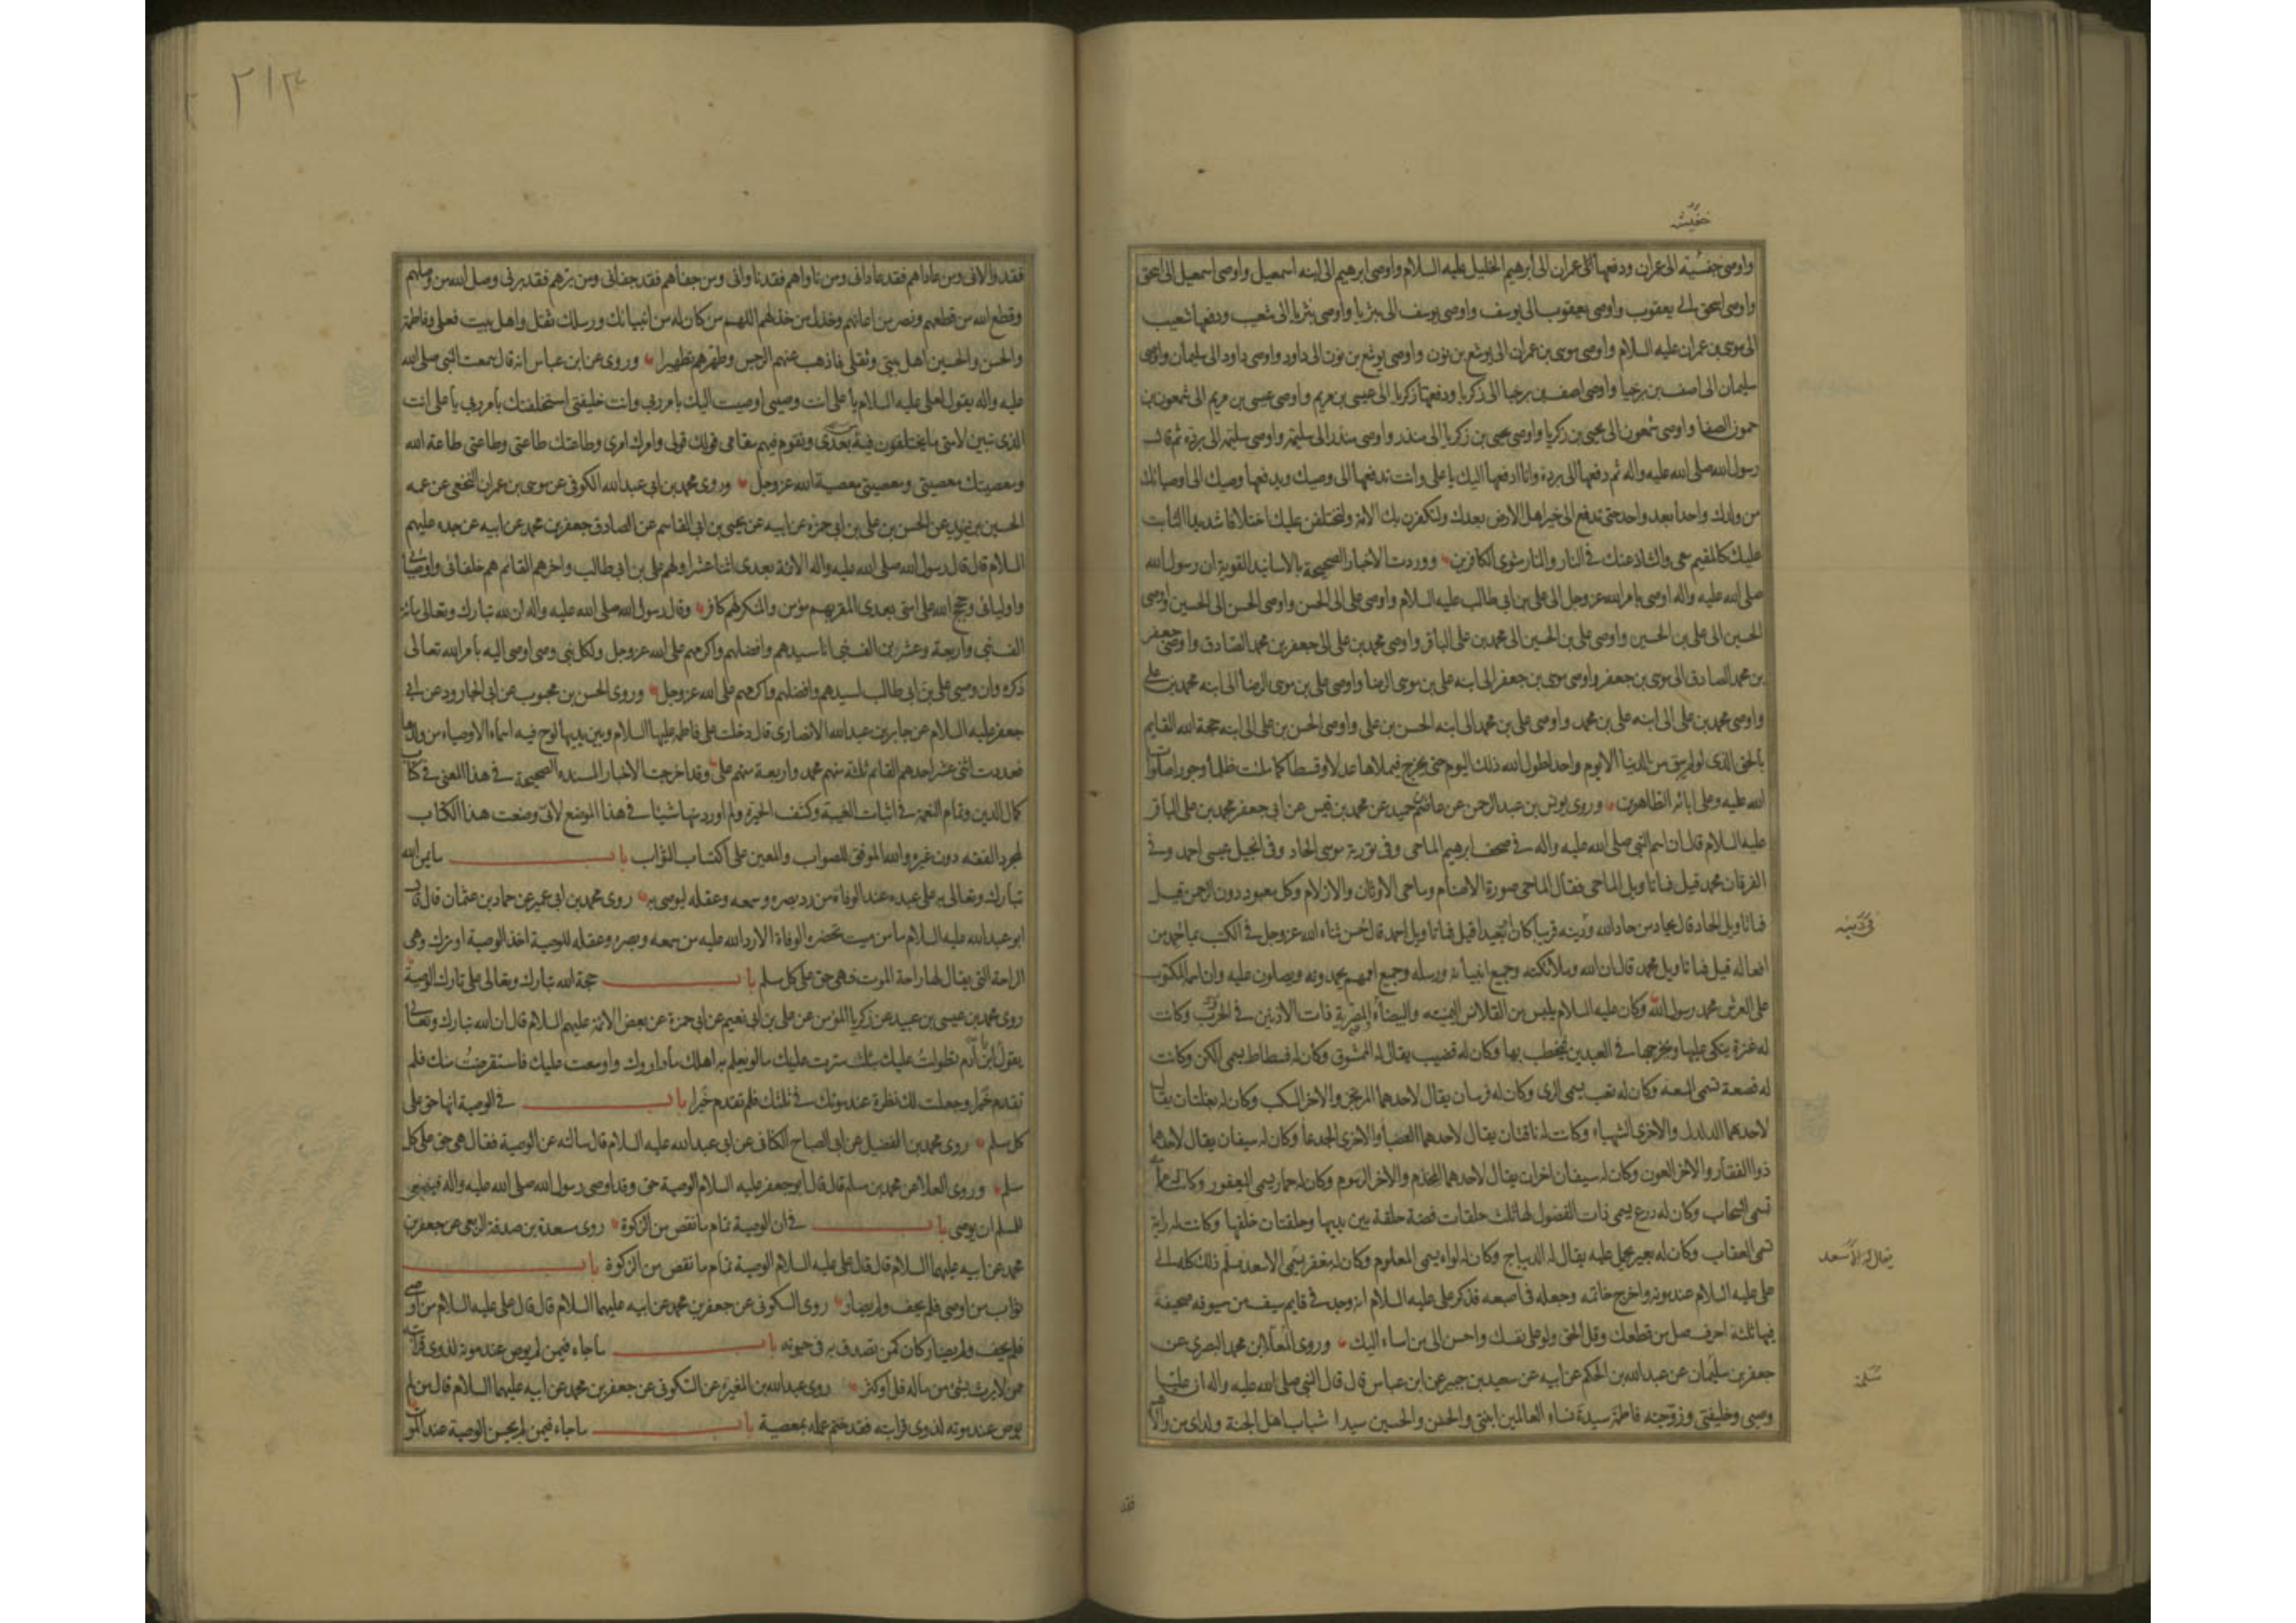 خفيسه
واوصى جفسيه الى عمران ودفعها الى عمران الى ابرهيم الخليل عليه السلام واوصى ابرهيم الى ابنه اسمعيل واوصى اسمعيل الى اسحق
واوصى اسحق الى يعقوب واوصى يعقوب الى يوسف واوصى يوسف الى بثريا واوصى بثريا الى شعيب ودفعها شعيب
الى موسى بن عمران عليه السلام واوصى موسى بن عمران الى يوشع بن نون واوصى يوشع بن نون الى داود واوصى داود الى سليمان واوصى
سليمان الى اصف بن برخيا واوصى اصف بن برخيا الى زكريا ودفعها زكريا الى عيسى بن مريم واوصى عيسى بن مريم الى شمعون بن
حمون الصفا واوصى شمعون الى يحيى بن زكريا واوصى يحيى بن زكريا الى منذر واوصى منذر الى سليمة واوصى سليمة الى بردة ثم قال
رسول الله صلى الله عليه واله ثم دفعها الى بردة وانا ادفعها اليك يا على وانت تدفعها الى وصيك ويدفعها وصيك الى اوصيائك
من ولدك واحدا بعد واحد حتى تدفع الى خير اهل الارض بعدك ولتكفرن بك الامة ولتختلفن عليك اختلافا شديدا الثابت
عليك كالمقيم معى والشاذ عنك فى النار والنار مثوى الكافرين وقد وردت الاخبار الصحيحة بالاسانيد القوية ان رسول الله
صلى الله عليه واله اوصى بامر الله عز وجل الى على بن ابى طالب عليه السلام واوصى على الى الحسن واوصى الحسن الى الحسين واوصى
الحسين الى على بن الحسين واوصى على بن الحسين الى محمد بن على الباقر واوصى محمد بن على الى جعفر بن محمد الصادق واوصى جعفر
بن محمد الصادق الى موسى بن جعفر واوصى موسى بن جعفر الى ابنه على بن موسى الرضا واوصى على بن موسى الرضا الى ابنه محمد بن على
واوصى محمد بن على الى ابنه على بن محمد واوصى على بن محمد الى ابنه الحسن بن على واوصى الحسن بن على الى ابنه حجة الله القايم
بالحق الذى لو لم يبق من الدنيا الا يوم واحد لطول الله ذلك اليوم حتى يخرج فيملاها عدلا وقسطا كما ملئت ظلما وجورا صلوات
الله عليه وعلى ابائه الطاهرين وروى يونس بن عبد الرحمن عن عاصم بن حميد عن محمد بن قيس عن ابى جعفر محمد بن على الباقر
عليه السلام قال ان اسم النبى صلى الله عليه واله فى صحف ابرهيم الماحى وفى تورية موسى الحاد وفى انجيل عيسى احمد وفى
الفرقان محمد قيل فما تاويل الماحى فقال الماحى صورة الاصنام وماحى الاوثان والازلام وكل معبود دون الرحمن قيل
فما تاويل الحاد قال يحاد من حاد الله ودينه قريبا كان او بعيدا قيل فما تاويل احمد قال حسن ثناء الله عز وجل فى الكتب بما حمد من
فى دينه
افعاله قيل فما تاويل محمد قال ان الله وملائكته وجميع انبيائه ورسله وجميع اممهم يحمدونه ويصلون عليه وان اسمه المكتوب
على العرش محمد رسول الله وكان عليه السلام يلبس من القلانس اليمنية والبيضاء والمضربة ذات الاذنين فى الحرب وكانت
له عنزة يتكى عليها ويخرجها فى العيدين فيخطب بها وكان له قضيب يقال له الممشوق وكان له فسطاط يسمى الكن وكانت
له قصعة تسمى السعة وكان له قعب يسمى الرى وكان له فرسان يقال لاحدهما المرتجز والاخر السكب وكان له بغلتان يقال
لاحدهما الدلدل والاخرى الشهباء وكانت له ناقتان يقال لاحدهما العضباء والاخرى الجدعا وكان له سيفان يقال لاحدهما
ذوا الفقار والاخر العون وكان له سيفان اخران يقال لاحدهما المخذم والاخر الرسوم وكان له حمار يسمى اليعفور وكانت له عمامة
تسمى السحاب وكان له درع يسمى ذات الفضول لها ثلث حلقات فضة حلقة بين يديها وحلقتان خلفها وكانت له راية
تسمى العقاب وكان له بعير يحمل عليه يقال له الديباج وكان له لواء يسمى المعلوم وكان له مغفر يسمى الاسعد فسلم ذلك كله الى
يقال له الاسعد
على عليه السلام عند موته واخرج خاتمه وجعله فى اصبعه فذكر على عليه السلام انه وجد فى قايم سيف من سيوفه صحيفة
فيها ثلثة احرف صل من قطعك وقل الحق ولو على نفسك واحسن الى من اساء اليك وروى المعلا بن محمد البصرى عن
جعفر بن سليمان عن عبد الله بن الحكم عن ابيه عن سعيد بن جبير عن ابن عباس قال قال النبى صلى الله عليه واله ان عليا
وصيى وخليفتى وزوجته فاطمة سيدة نساء العالمين ابنتى والحسن والحسين سيدا شباب اهل الجنة ولداى من والاهم
فقد
٢١٣
فقد والانى ومن عاداهم فقد عادانى ومن ناواهم فقد ناوانى ومن جفاهم فقد جفانى ومن برهم فقد برنى وصل الله من وصلهم
وقطع الله من قطعهم ونصر من اعانهم وخذل من خذلهم اللهم من كان له من انبيائك ورسلك ثقل واهل بيت فعلى وفاطمة
والحسن والحسين اهل بيتى وثقلى فاذهب عنهم الرجس وطهرهم تطهيرا وروى عن ابن عباس انه قال سمعت النبى صلى الله
عليه واله يقول لعلى عليه السلام يا على انت وصيى اوصيت اليك بامر ربى وانت خليفتى استخلفتك بامر ربى يا على انت
الذى تبين لامتى ما يختلفون فيه بعدى وتقوم فيهم مقامى قولك قولى وامرك امرى وطاعتك طاعتى وطاعتى طاعة الله
ومعصيتك معصيتى ومعصيتى معصية الله عز وجل وروى محمد بن ابى عبد الله الكوفى عن موسى بن عمران النخعى عن عمه
الحسين بن يزيد عن الحسن بن على بن ابى حمزة عن ابيه عن يحيى بن ابى القاسم عن الصادق جعفر بن محمد عن ابيه عن جده عليهم
السلام قال قال رسول الله صلى الله عليه واله الائمة بعدى اثنا عشر اولهم على بن ابى طالب واخرهم القائم هم خلفائى واوصيائى
واوليائى وحجج الله على امتى بعدى المقر بهم مؤمن والمنكر لهم كافر وقال رسول الله صلى الله عليه واله ان لله تبارك وتعالى مائة
الف نبى واربعة وعشرين الف نبى انا سيدهم وافضلهم واكرمهم على الله عز وجل ولكل نبى وصى اوصى اليه بامر الله تعالى
ذكره وان وصيى على بن ابى طالب لسيدهم وافضلهم واكرمهم على الله عز وجل وروى الحسن بن محبوب عن ابى الجارود عن ابى
جعفر عليه السلام عن جابر بن عبد الله الانصارى قال دخلت على فاطمة عليها السلام وبين يديها لوح فيه اسماء الاوصياء من ولدها
فعددت اثنى عشر احدهم القائم ثلثة منهم محمد واربعة منهم على وقد اخرجت الاخبار المسنده الصحيحة فى هذا المعنى فى كتاب
كمال الدين وتمام النعمة فى اثبات الغيبة وكشف الحيرة ولم اورد منها شيئا فى هذا الموضع لانى وضعت هذا الكتاب
لمجرد الفقه دون غيره والله الموفق للصواب والمعين على اكتساب الثواب باب ما يمن الله
تبارك وتعالى به على عبده عند الوفاة من رد بصره وسمعه وعقله ليوصى به روى محمد بن ابى عمير عن حماد بن عثمان قال قال
ابو عبد الله عليه السلام ما من ميت تحضره الوفاة الا رد الله عليه من سمعه وبصره وعقله للوصية اخذ الوصية او ترك وهى
الراحة التى يقال لها راحة الموت فهى حق على كل مسلم باب حجة الله تبارك وتعالى على تارك الوصية
روى محمد بن عيسى بن عبيد عن زكريا المؤمن عن على بن ابى نعيم عن ابى حمزة عن بعض الائمة عليهم السلام قال ان الله تبارك وتعالى
يقول ابن آدم تطولت عليك بثلث سترت عليك ما لو يعلم به اهلك ما واروك واوسعت عليك فاستقرضت منك فلم
تقدم خيرا وجعلت لك نظرة عند موتك فى ثلثك فلم تقدم خيرا باب فى الوصية انها حق على
كل مسلم روى محمد بن الفضيل عن ابى الصباح الكنانى عن ابى عبد الله عليه السلام قال سالته عن الوصية فقال هى حق على كل
مسلم وروى العلا عن محمد بن مسلم قال قال ابو جعفر عليه السلام الوصية حق وقد اوصى رسول الله صلى الله عليه واله فينبغى
للمسلم ان يوصى باب فى ان الوصية تمام ما نقص من الزكوة روى مسعدة بن صدقة الربعى عن جعفر بن
محمد عن ابيه عليهما السلام قال قال على عليه السلام الوصية تمام ما نقص من الزكوة باب
ثواب من اوصى فلم يحف ولم يضار روى السكونى عن جعفر بن محمد عن ابيه عليهما السلام قال قال على عليه السلام من اوصى
فلم يحف ولم يضار كان كمن تصدق به فى حيوته باب ما جاء فيمن لم يوص عند موته لذوى قرابته
ممن لا يرث بشئ من ماله قل او كثر روى عبد الله بن المغيرة عن السكونى عن جعفر بن محمد عن ابيه عليهما السلام قال من لم
يوص عند موته لذوى قرابته فقد ختم عمله بمعصية باب ما جاء فيمن لم يحسن الوصية عند الموت